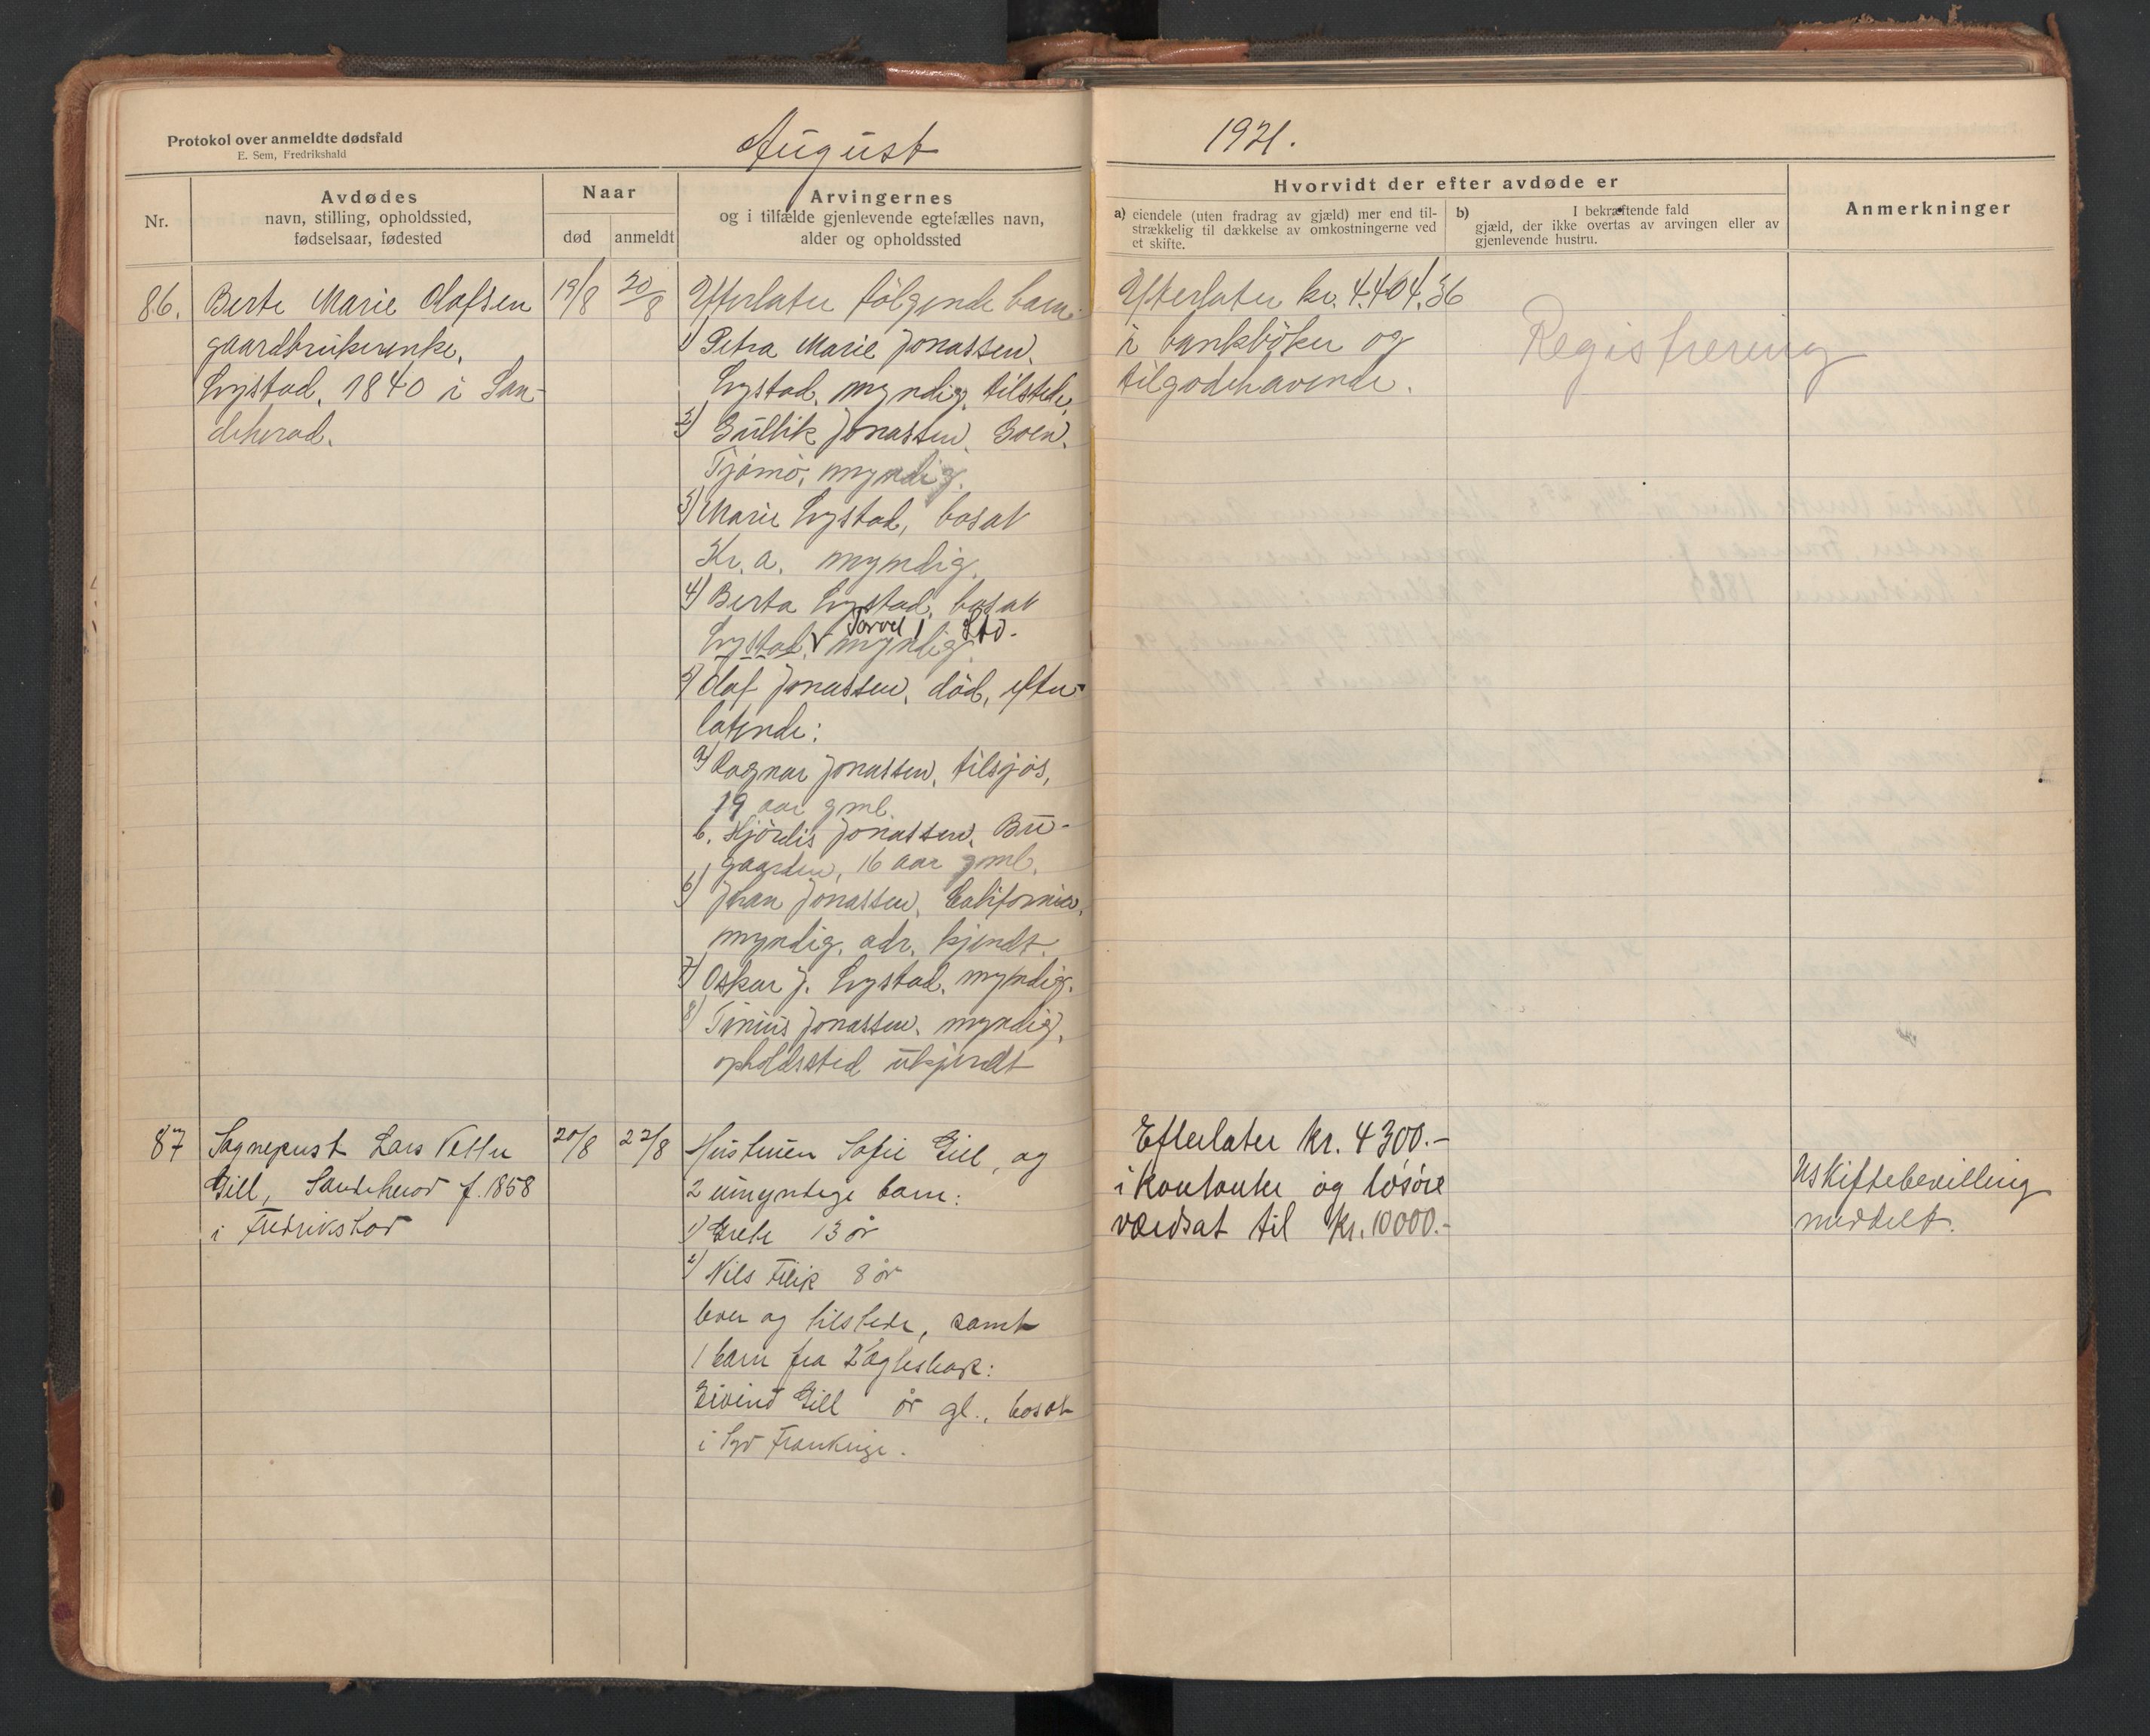 Protokol over anmeldte dødsfald
E. Sem, Fredrikshald
August
1921.
Nr.
Avdødes
navn, stilling, opholdssted,
fødselsaar, fødested
Naar
død
anmeldt
Arvingernes
og i tilfælde gjenlevende egtefælles navn,
alder og opholdssted
Hvorvidt der efter avdøde er
a) eiendele (uten fradrag av gjæld) mer end til-
strækkelig til dækkelse av omkostningerne ved
et skifte.
b) I bekræftende fald
gjæld, der ikke overtas av arvingen eller av
gjenlevende hustru.
Anmerkninger
86.
Berte Marie Olafsen
gaardbrukerenke,
Lystad, 1840 i San-
deherad.
19/8
20/8
Efterlater følgende barn:
1) Petra Marie Jonassen,
Lystad, myndig, tilstede,
2) Gullik Jonassen, Goen,
Tjømø, myndig.
3) Marie Lystad, bosat
Kr.a. myndig.
4) Berta Lystad, bosat
Torvet 1 Std.
Lystad, v myndig.
5) Olaf Jonassen, død, efter-
latende:
a) Ragnar Jonassen, tilsjøs,
19 aar gml.
b. Hjördis Jonassen, Bu-
gaarden, 16 aar gml.
6) Johan Jonassen, California,
myndig, adr. kjendt.
7) Oskar J. Lystad, myndig.
8) Tinius Jonassen, myndig,
opholdssted ukjendt
Efterlater kr. 4.404,36
i bankböker og
tilgodehavende.
Registrering
87
Sogneprest Lars
Gill, Sandeherad f. 1858
i Fredrikstad
20/8
22/8
Hustruen Sofie Gill, og
2 umyndige barn:
1) Grete 13 år
2) Nils 8 år
 og tilstede, samt
1 barn fra Egteskap:
Eivind Gill år gl., bosat
i Syd Frankrige.
Efterlater kr. 4300.-
i kontanter og løsøre
værdsat til kr. 10000.-
Uskiftebevilling
meddelt.